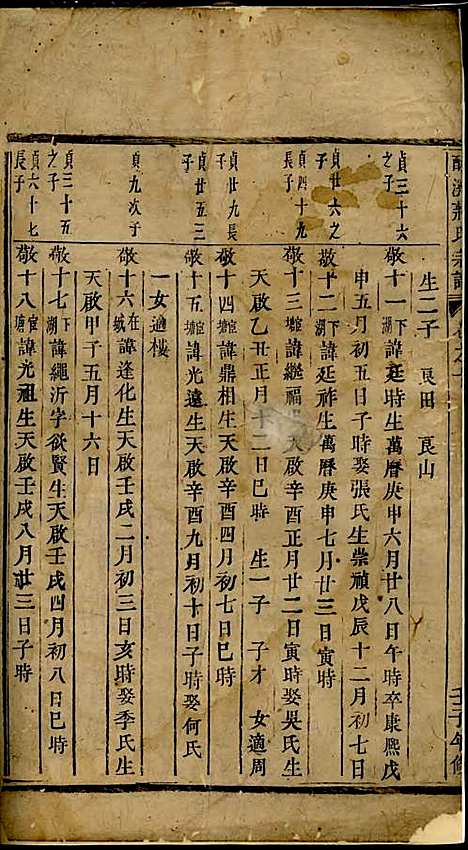 氏宗譜 壬子年修
生二子 艮田 艮山
貞三十六之子 敬十一 下湖 諱廷時生萬曆庚申六月廿八日午時卒康熙戊
申五月初五日子時娶張氏生崇禎戊辰十二月初七日
貞廿六之子 敬十二 下湖 諱廷祚生萬曆庚申七月廿三日寅時
貞四十九長子 敬十三 官塘 諱繼福 天啟辛酉正月廿二日寅時娶吳氏生
天啟乙丑正月十二日巳時 生一子 子才 女適周
貞廿九長子 敬十四 官塘 諱鼎相生天啟辛酉四月初七日巳時
貞廿五三子 敬十五 官塘 諱光遠生天啟辛酉九月初十日子時娶何氏
一女適樓
貞九次子 敬十六 在城 諱逢化生天啟壬戌二月初三日亥時娶季氏生
天啟甲子五月十六日
貞三十五之子 敬十七 下湖 諱繩沂字欲賢生天啟壬戌四月初八日巳時
貞六十七長子 敬十八 官塘 諱光祖生天啟壬戌八月廿三日子時